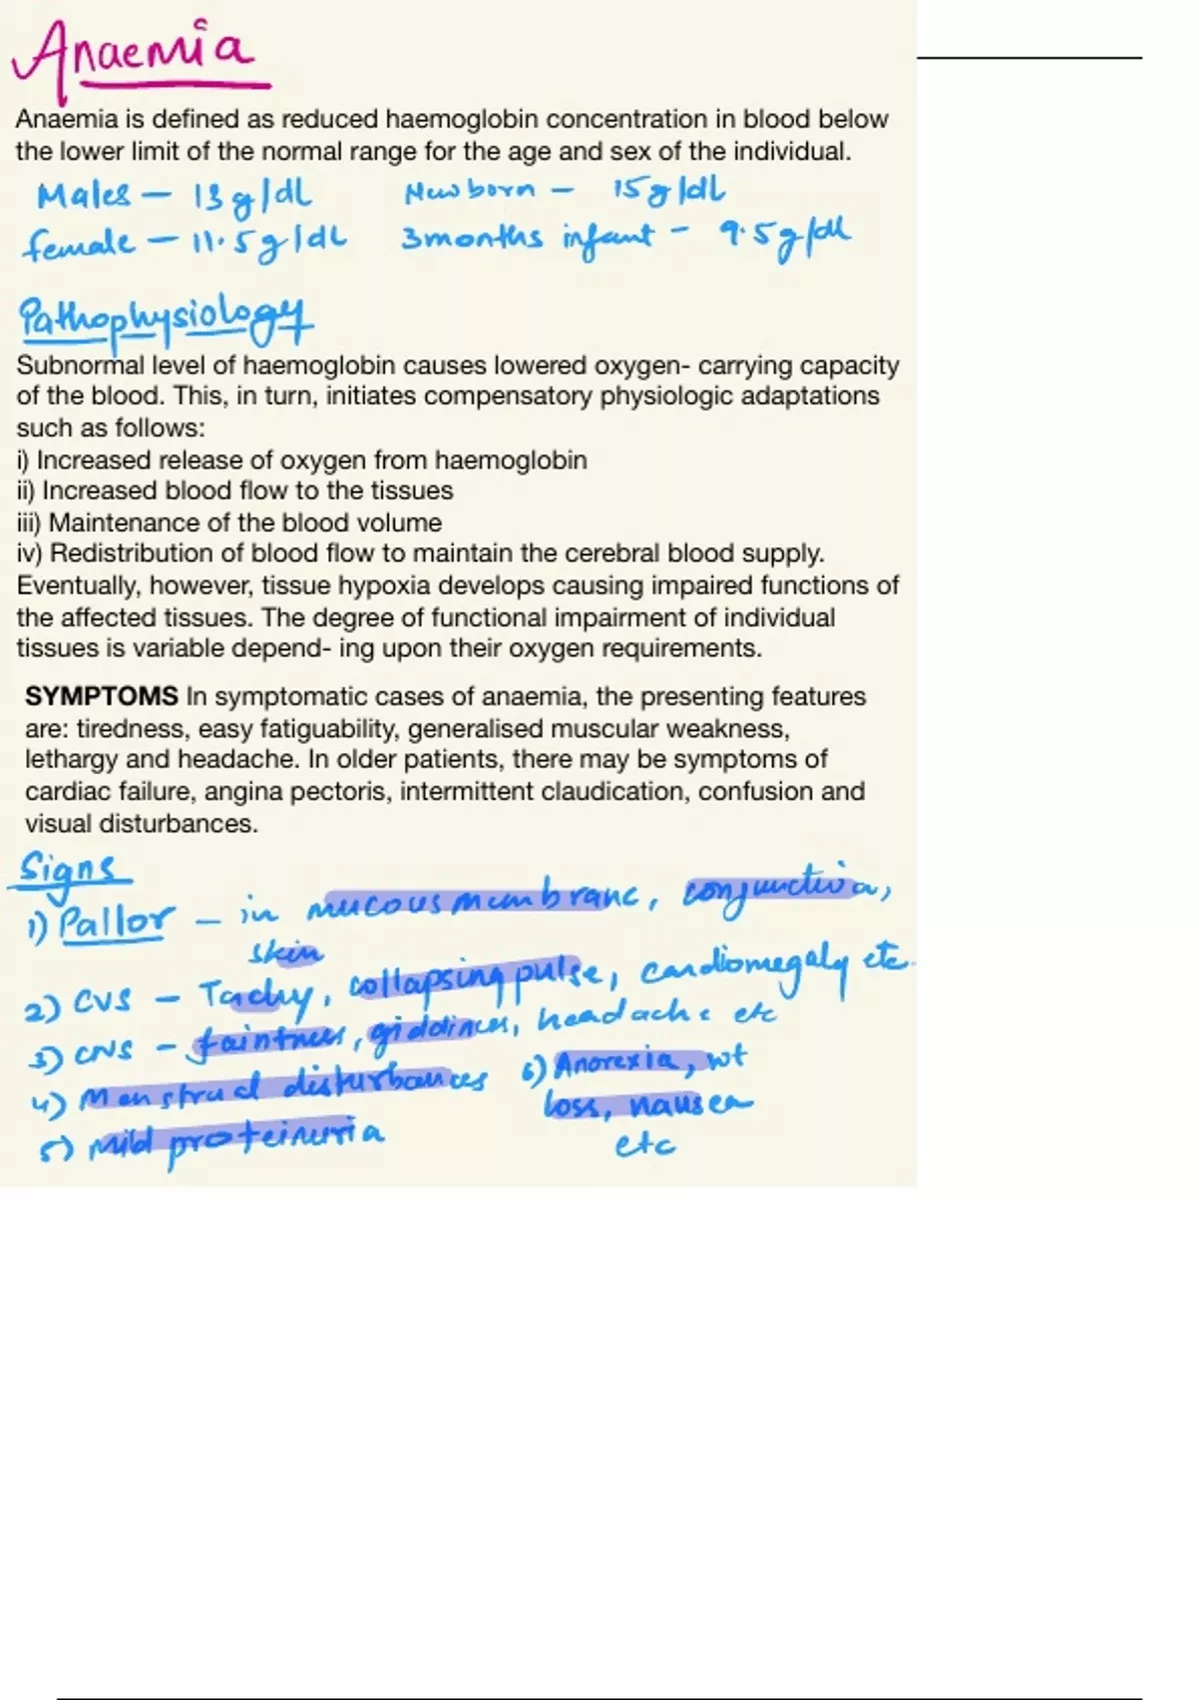 Anaemia
Anaemia is defined as reduced haemoglobin concentration in blood below
the lower limit of the normal range for the age and sex of the individual.
Males – 13 g/dl
Newborn – 15g/dl
female – 11.5g/dl
3months infant - 9.5g/dl
Pathophysiology
Subnormal level of haemoglobin causes lowered oxygen- carrying capacity
of the blood. This, in turn, initiates compensatory physiologic adaptations
such as follows:
i) Increased release of oxygen from haemoglobin
ii) Increased blood flow to the tissues
iii) Maintenance of the blood volume
iv) Redistribution of blood flow to maintain the cerebral blood supply.
Eventually, however, tissue hypoxia develops causing impaired functions of
the affected tissues. The degree of functional impairment of individual
tissues is variable depend- ing upon their oxygen requirements.
SYMPTOMS In symptomatic cases of anaemia, the presenting features
are: tiredness, easy fatiguability, generalised muscular weakness,
lethargy and headache. In older patients, there may be symptoms of
cardiac failure, angina pectoris, intermittent claudication, confusion and
visual disturbances.
Signs
1) Pallor – in mucous membrane, conjunctiva,
skin
2) CVS – Tachy, collapsing pulse, cardiomegaly etc.
3) CNS – faintness, giddiness, headache etc
4) Menstrual disturbances
5) Mild proteinuria
6) Anorexia, wt
loss, nausea
etc